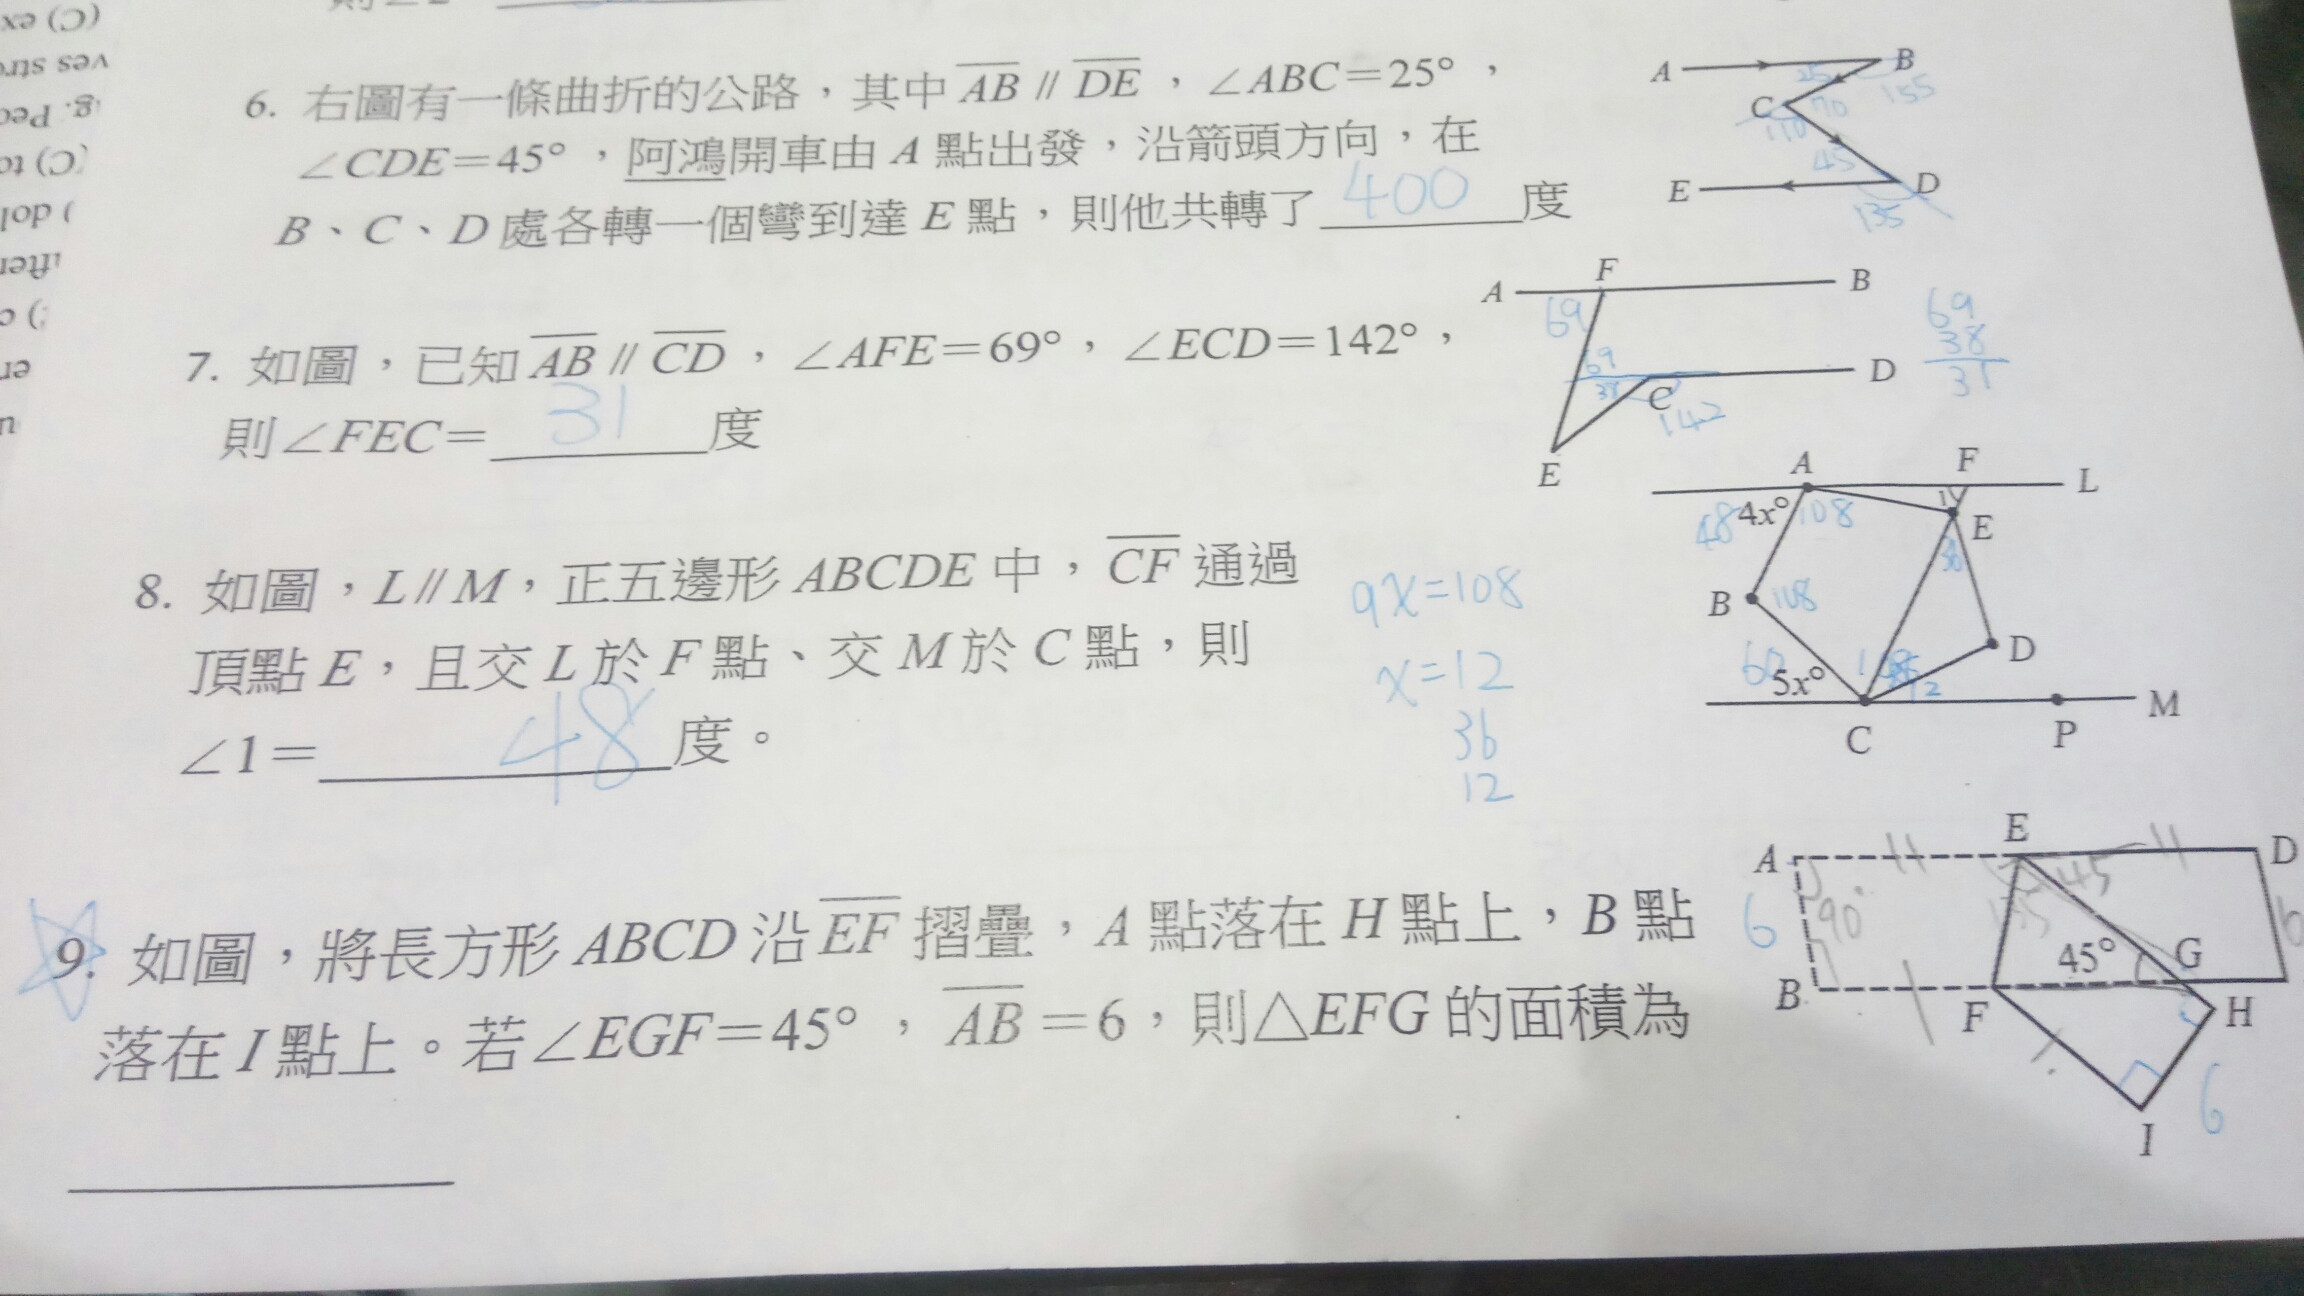 (C) ex
ves stro
(C) to
) dol
6. 右圖有一條曲折的公路，其中 AB // DE，∠ABC=25°，
∠CDE=45°，阿鴻開車由 A 點出發，沿箭頭方向，在
B、C、D 處各轉一個彎到達 E 點，則他共轉了 400 度
A B C D E
25 155 70 110 45 135
7. 如圖，已知 AB // CD，∠AFE=69°，∠ECD=142°，
則∠FEC= 31 度
A F B C D E
69 69 38 142
69
38
31
8. 如圖，L // M，正五邊形 ABCDE 中，CF 通過
頂點 E，且交 L 於 F 點、交 M 於 C 點，則
∠1= 48 度。
9x=108
x=12
36
12
A F L
48 4x° 108 1 E
B 108 D
60 5x° 12
C P M
9. 如圖，將長方形 ABCD 沿 EF 摺疊，A 點落在 H 點上，B 點
落在 I 點上。若∠EGF=45°，AB=6，則△EFG 的面積為
A E D
6 90° 135 45 6
45° G
B F H
6
I